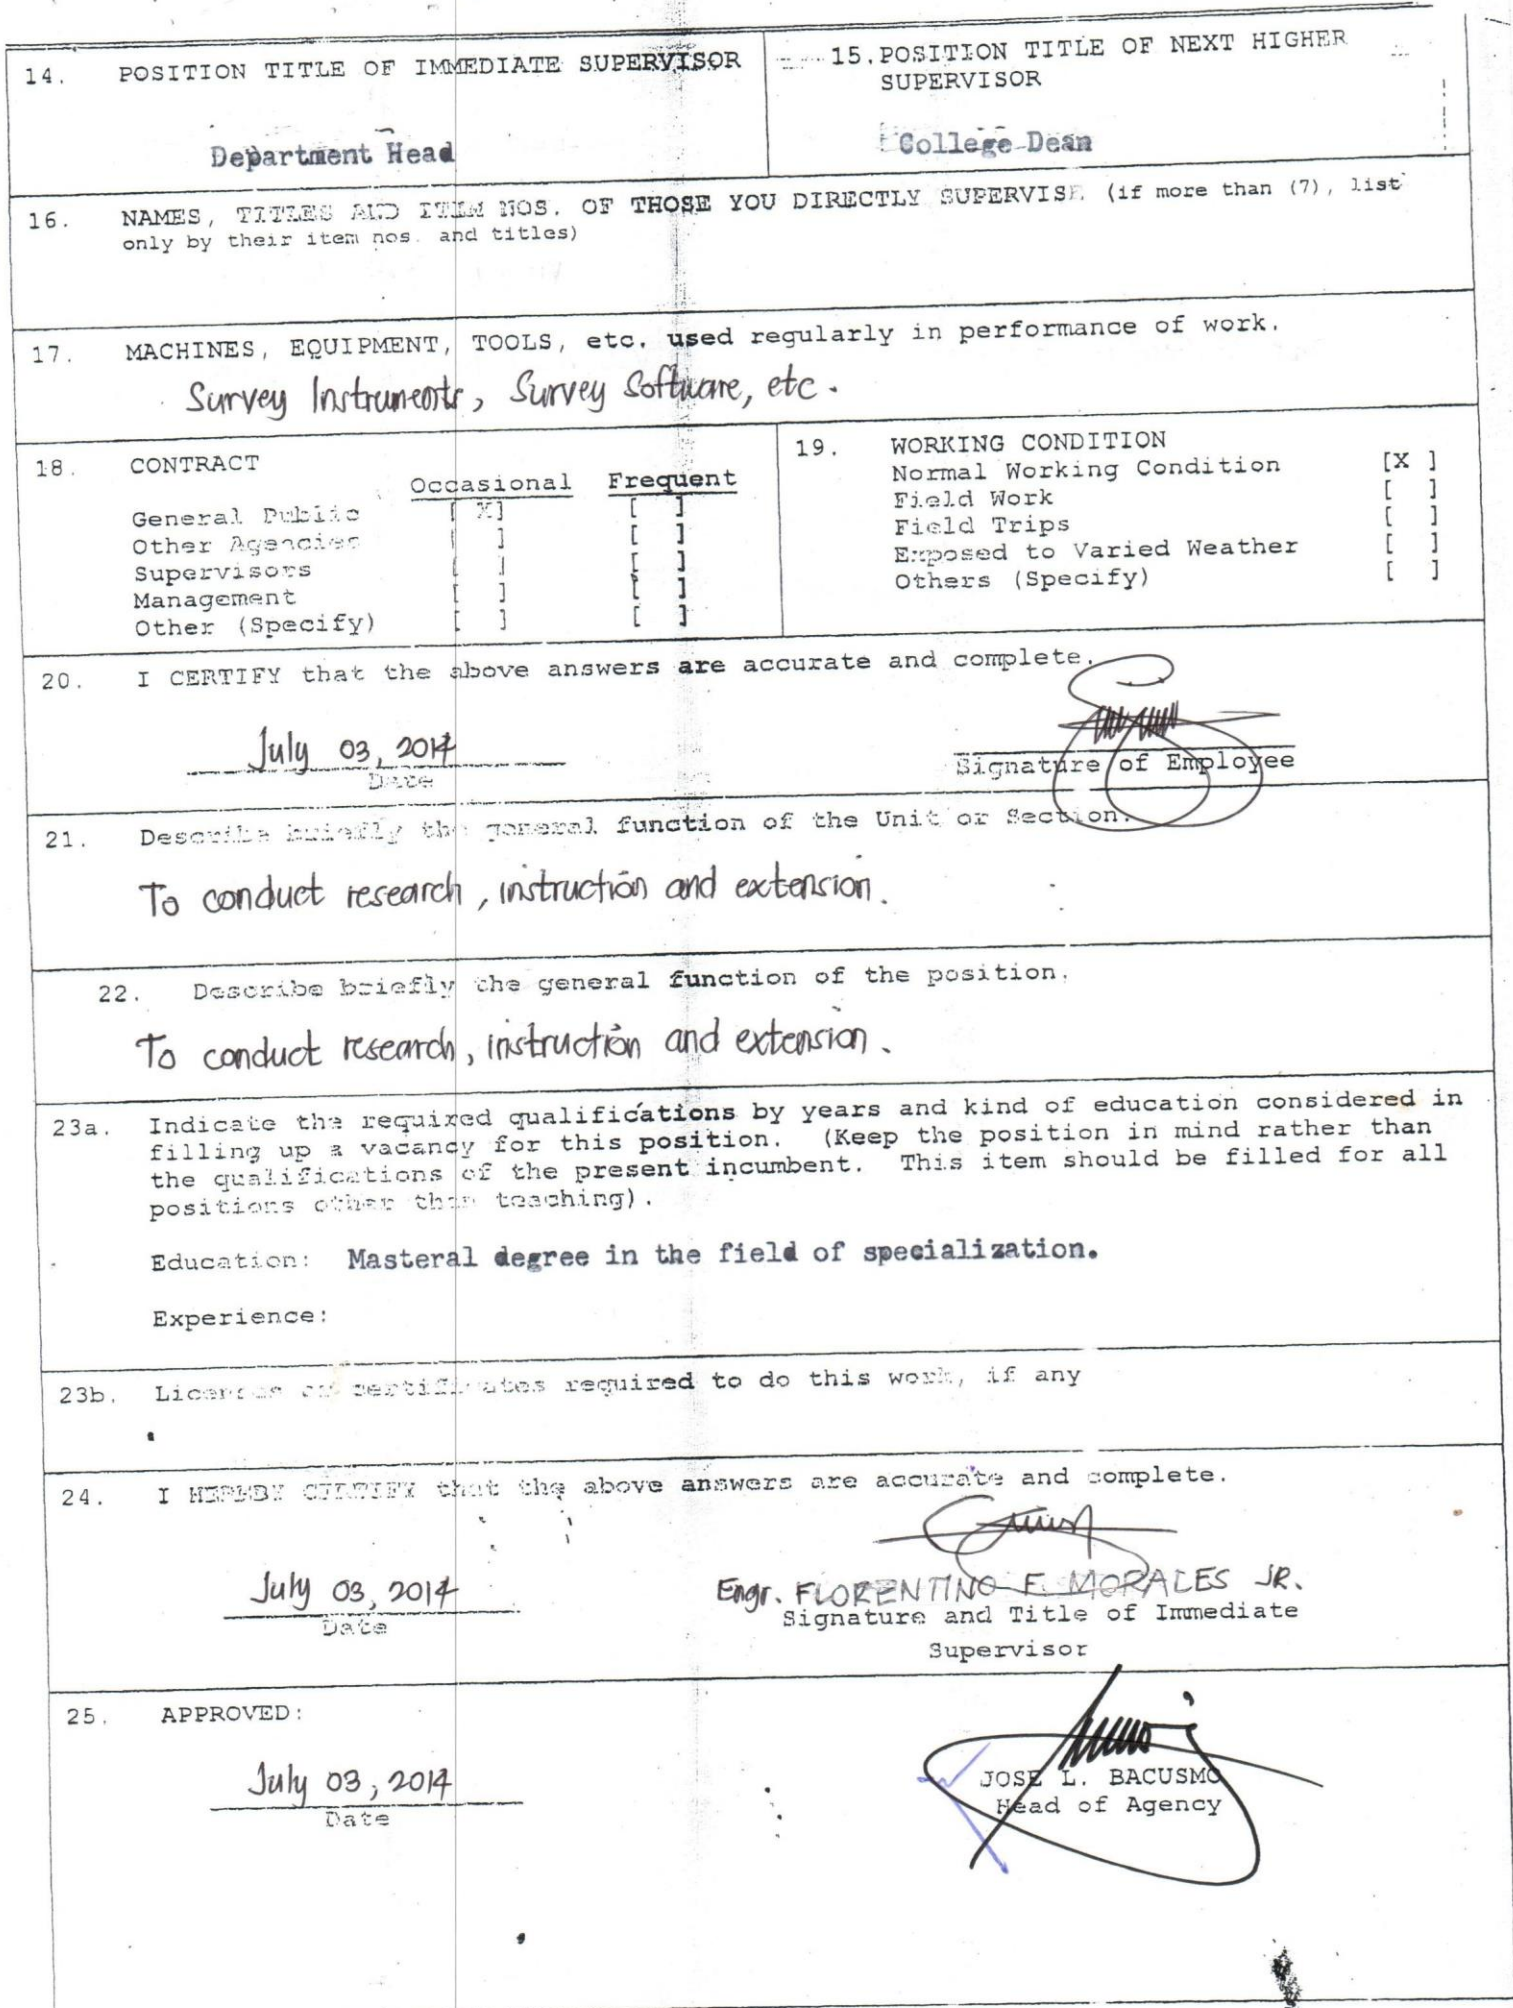 14. POSITION TITLE OF IMMEDIATE SUPERVISOR
Department Head
15. POSITION TITLE OF NEXT HIGHER
SUPERVISOR
College Dean
16. NAMES, TITLES AND ITEM NOS. OF THOSE YOU DIRECTLY SUPERVISE (if more than (7), list
only by their item nos. and titles)
17. MACHINES, EQUIPMENT, TOOLS, etc. used regularly in performance of work.
Survey Instruments, Survey Software, etc.
18. CONTRACT
Occasional Frequent
General Public [ X] [ ]
Other Agencies [ ] [ ]
Supervisors [ ] [ ]
Management [ ] [ ]
Other (Specify) [ ] [ ]
19. WORKING CONDITION
Normal Working Condition [X ]
Field Work [ ]
Field Trips [ ]
Exposed to Varied Weather [ ]
Others (Specify) [ ]
20. I CERTIFY that the above answers are accurate and complete.
July 03, 2014
Date
Signature of Employee
21. Describe briefly the general function of the Unit or Section.
To conduct research, instruction and extension.
22. Describe briefly the general function of the position.
To conduct research, instruction and extension.
23a. Indicate the required qualifications by years and kind of education considered in
filling up a vacancy for this position. (Keep the position in mind rather than
the qualifications of the present incumbent. This item should be filled for all
positions other than teaching).
Education: Masteral degree in the field of specialization.
Experience:
23b. Licenses or certificates required to do this work, if any
24. I HEREBY CERTIFY that the above answers are accurate and complete.
July 03, 2014
Date
Engr. FLORENTINO F. MORALES JR.
Signature and Title of Immediate
Supervisor
25. APPROVED:
July 03, 2014
Date
JOSE L. BACUSMO
Head of Agency